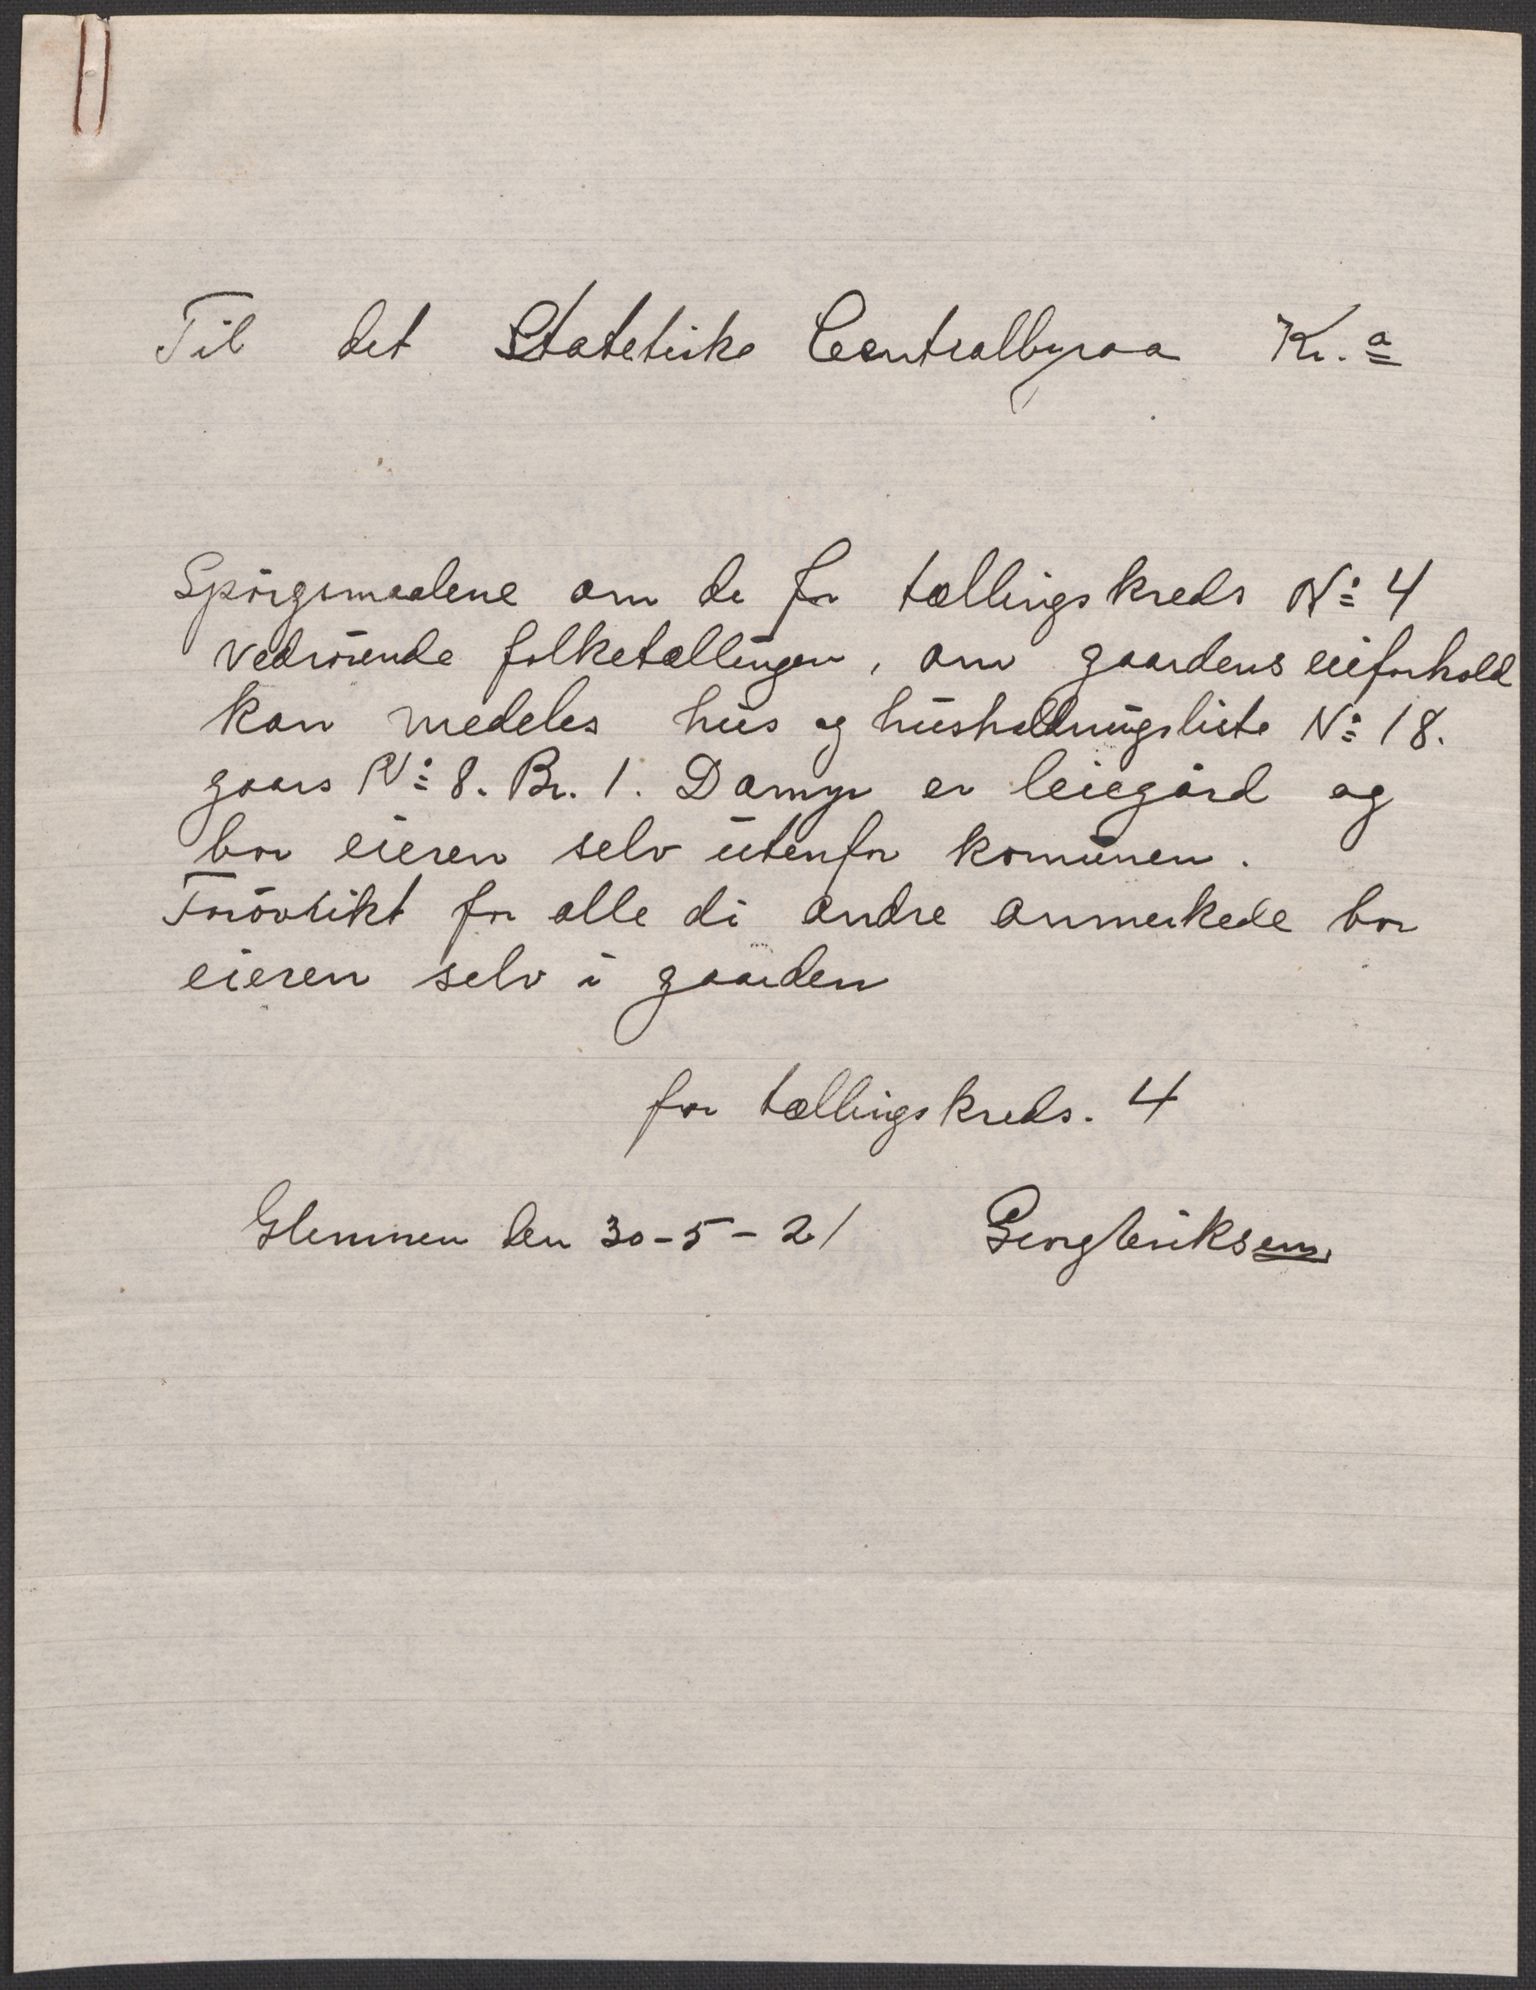 Til det Statetiske Centralbyraa Kr.a
Spörgsmaalene om de for tællingskreds No 4
vedrörende folketællingen, om gaardens eieforhold
kan medeles hus og husholdningsliste No 18.
gaars No 8. Br. 1. Damyr er leiegård og
bor eieren selv utenfor komunen.
for alle di andre anmerkede bor
eieren selv i gaarden
for tællingskreds. 4
Glemmen den 30-5-21 Georg Eriksen